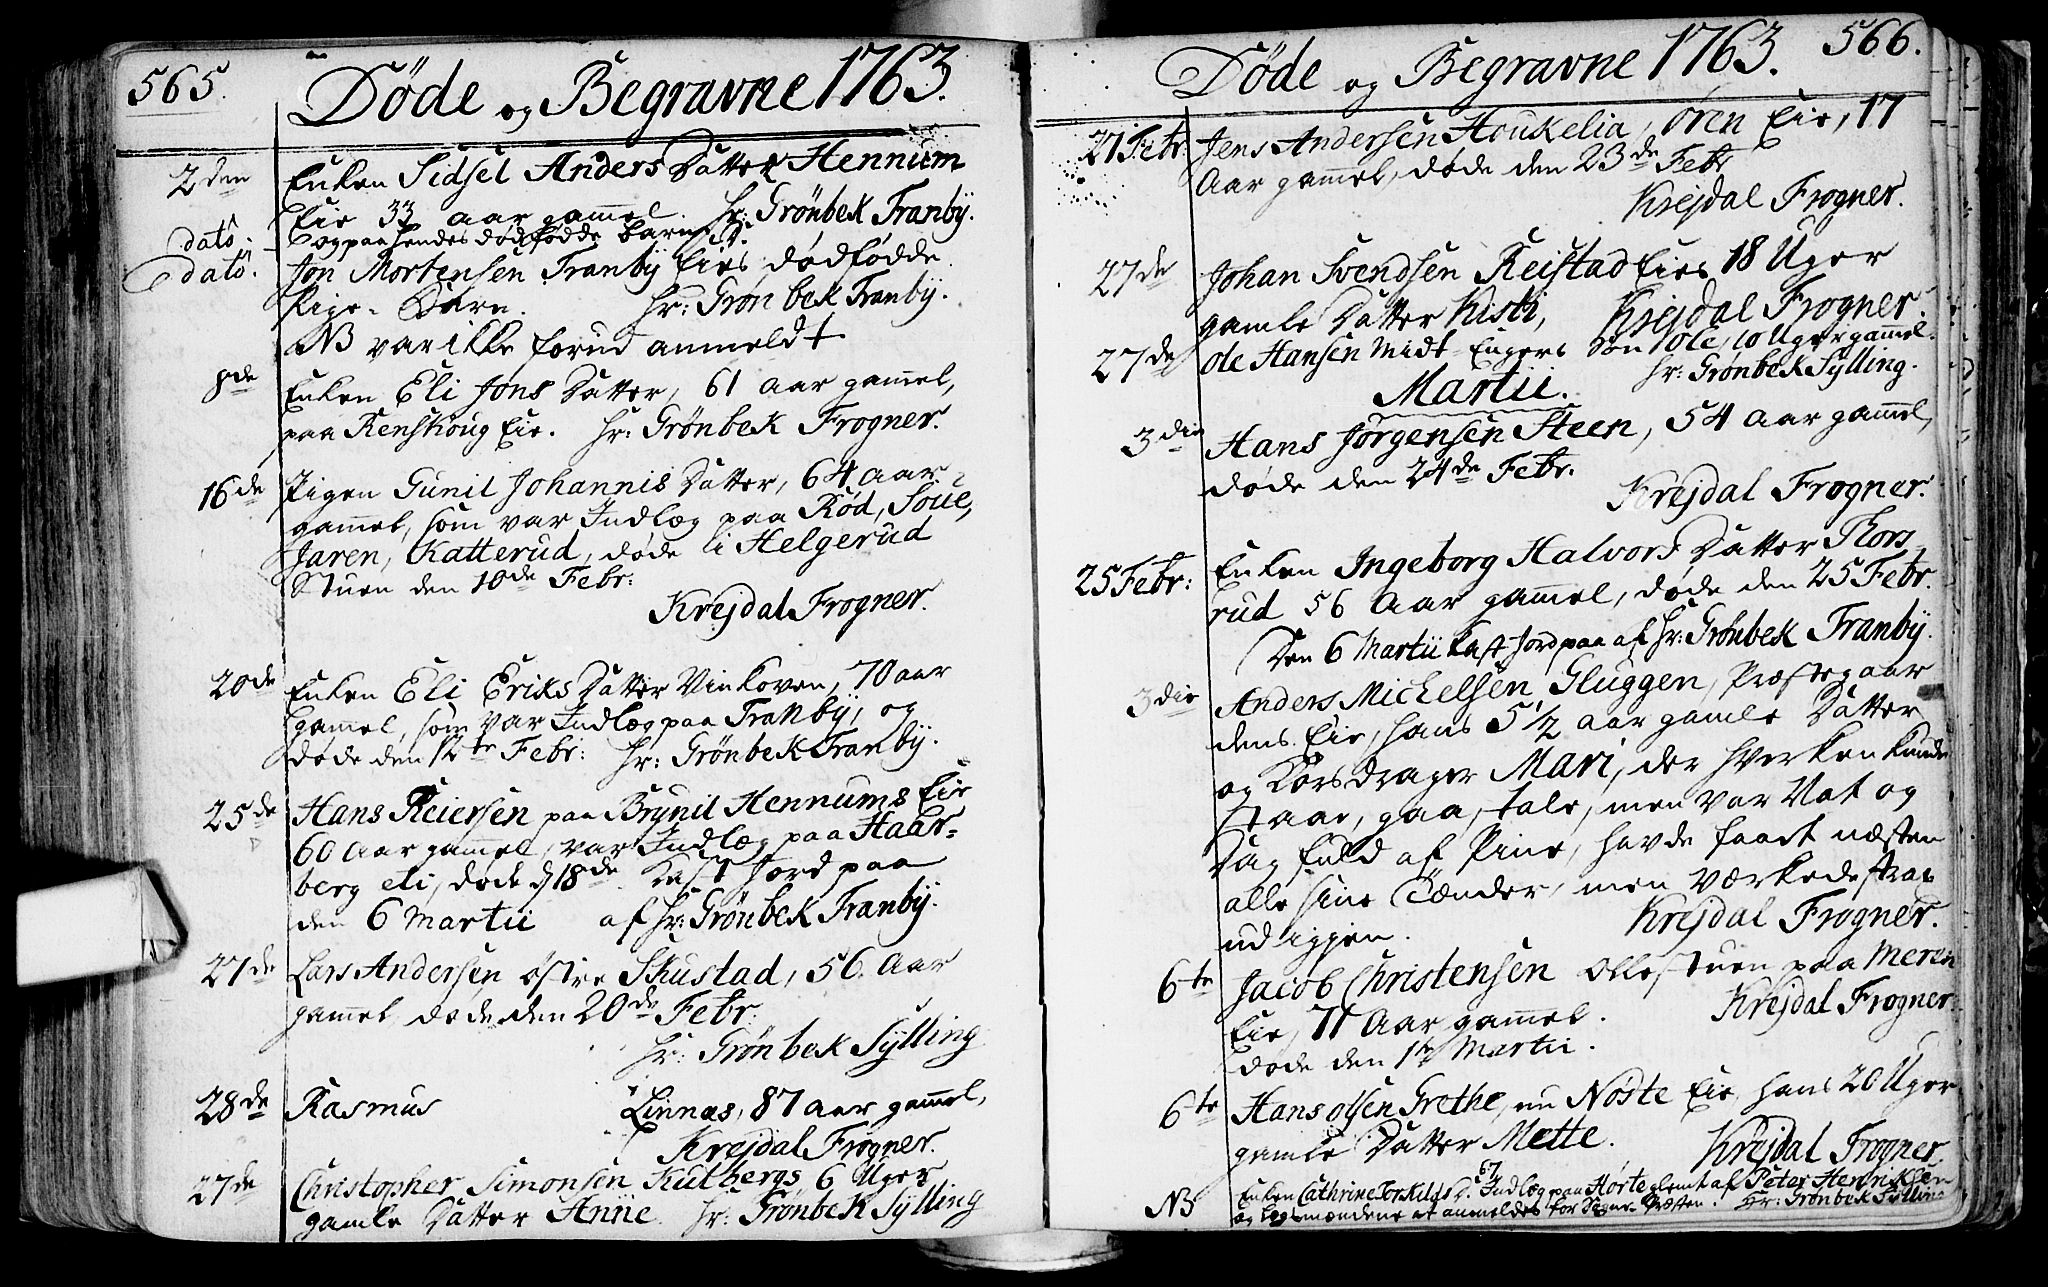 565.
Döde og Begravne 1763.
2den Enken Sidsel Anders Datter Hennum
Eie 33 aar gammel. Hr: Grönbek Tranby.
dato: og paa hendes dödfödde barn
dato. Jon Mortensen Tranbÿ Eies dödfödde
Pige-Barn. Hr: Grönbek Tranbÿ.
NB var ikke forud anmeldt
8de Enken Eli Jons Datter, 61 aar gammel,
paa Renskoug Eie. Hr: Grönbek Frogner.
16de Pigen Gunil Johannis Datter, 64 aar
gammel, som var Indlæg paa Röd, Soue,
Jaren, Katterud, döde i Helgerud
Stuen den 10de Febr:
Krejdal Frogner.
20de Enken Eli Eriks Datter Vinkoven, 70 aar
gammel, som var Indlæg paa Tranbÿ, og
döde den 12te Febr: Hr: Grönbek Tranbÿ.
25de Hans Reiersen paa Brynil Hennums Eie
60 Aar gammel, var Indlæg paa Haar-
berg eli, döde d 18de. Kast Jord paa
den 6 Martii af Hr: Grönbek Tranbÿ.
27de Lars Andersen östre Skustad, 56. Aar
gammel, döde den 20de Febr:
Hr: Grönbek Sÿlling
28de Rasmus Linnæs, 87 aar gammel,
Krejdal Frogner.
27de Christopher Simonsen Kulbergs 6 Uger
gamle Datter Anne. Hr: Grönbek Sylling
566.
Döde og Begravne 1763.
27 Febr Jens Andersen Houkelia, ören Eie, 17
Aar gammel, döde den 23de Febr
Krejdal Frogner.
27de Johan Svendsen Reistad Eies 18 Uger
gamle Datter Kisti, Krejdal Frogner.
27de Ole Hansen Midt-Engers Sön Ole, 10 Uger gammel.
Hr: Grönbek Sylling.
Martii.
3die Hans Jörgensen Steen, 54 aar gammel,
döde den 24de Febr.
Krejdal Frogner.
25 Febr: Enken Ingeborg Halvors Datter Thors-
rud 56 Aar gammel, döde den 25 Febr.
Den 6 Martii kast Jord paa af Hr: Grönbek Tranbÿ.
3die Anders Michelsen Gluggen, Præstegaar
dens Eie, hans 5 1/2 aar gamle Datter
og Korsdrager Mari, der hverken kunde
staae, gaa, tale, men var Nat og
Dag fuld af Pine, havde faaet næsten
alle sine Tænder, men værkede strax
ud igjen. Krejdal Frogner.
6te Jacob Christensen Ollestuen paa Meren
Eie, 71 Aar gammel. Krejdal Frogner.
döde den 1te Martii.
6te Hans olsen Grethe, nu Nöste Eie, hans 20 Uger
gamle Datter Mette. Krejdal Frogner.
NB Enken Cathrine Torkilds D. 67 Indlæg paa Hörte glemt af Peter Hendriksen
og Lægsmændene at anmeldes for Sogne Præsten. Hr: Grönbek Sylling